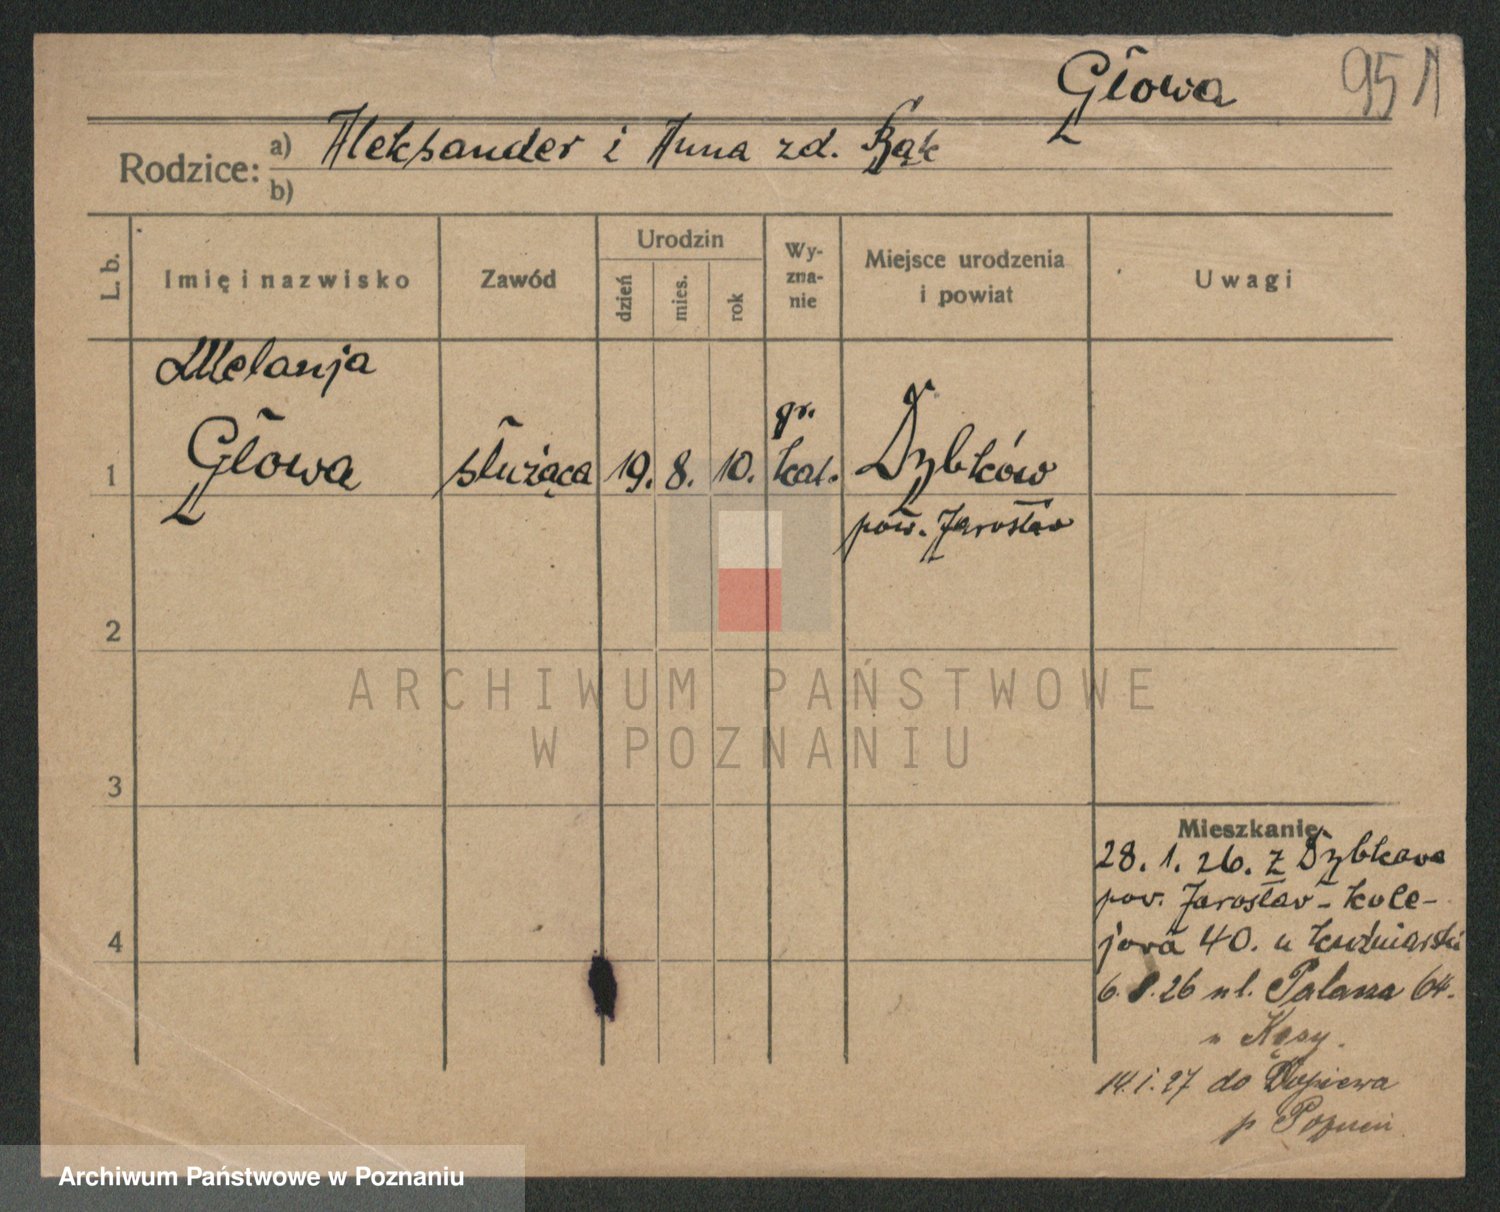 Głowa 951
Rodzice: a) Aleksander i Anna zd. Bąk
b)
L. b. Imię i nazwisko Zawód Urodzin dzień mies. rok Wy-zna-nie Miejsce urodzenia i powiat Uwagi
Melanja
Głowa
1 służąca 19. 8. 10. gr. kat. Dybków
pow. Jarosław
2
3
4
Mieszkanie
28. 1. 26. z Dybkowa
pow. Jarosław - Kole-
jowa 40. u Kuźniarski
6. 8. 26 ul. Palacza 64.
u
14. 1. 27 do Dopiewa
p Poznań
ARCHIWUM PAŃSTWOWE
W POZNANIU
Archiwum Państwowe w Poznaniu